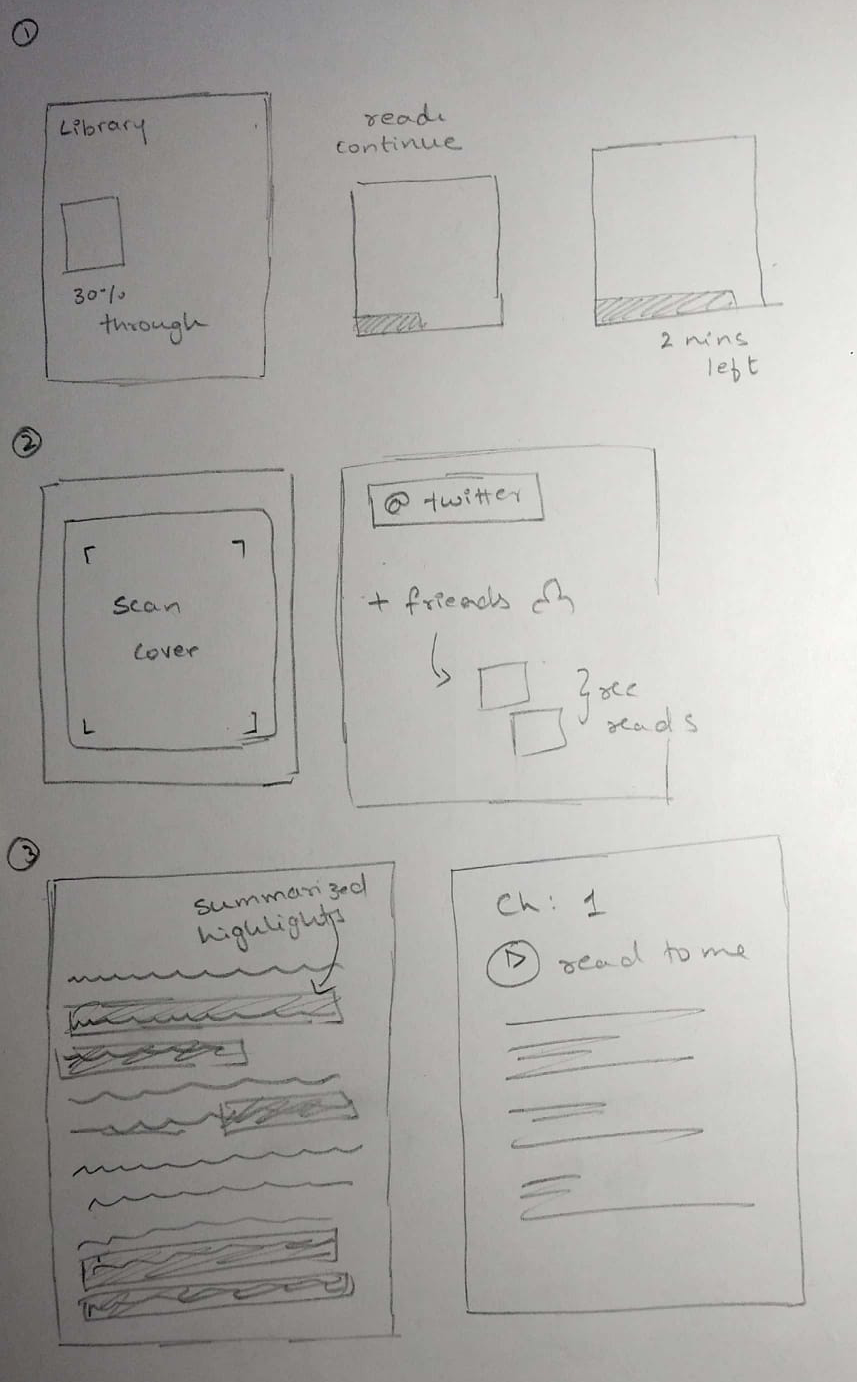 1
Library
30%
through
read
continue
2 mins
left
2
scan
cover
@ twitter
+ friends
rec
reads
3
summarized
highlights
Ch: 1
read to me